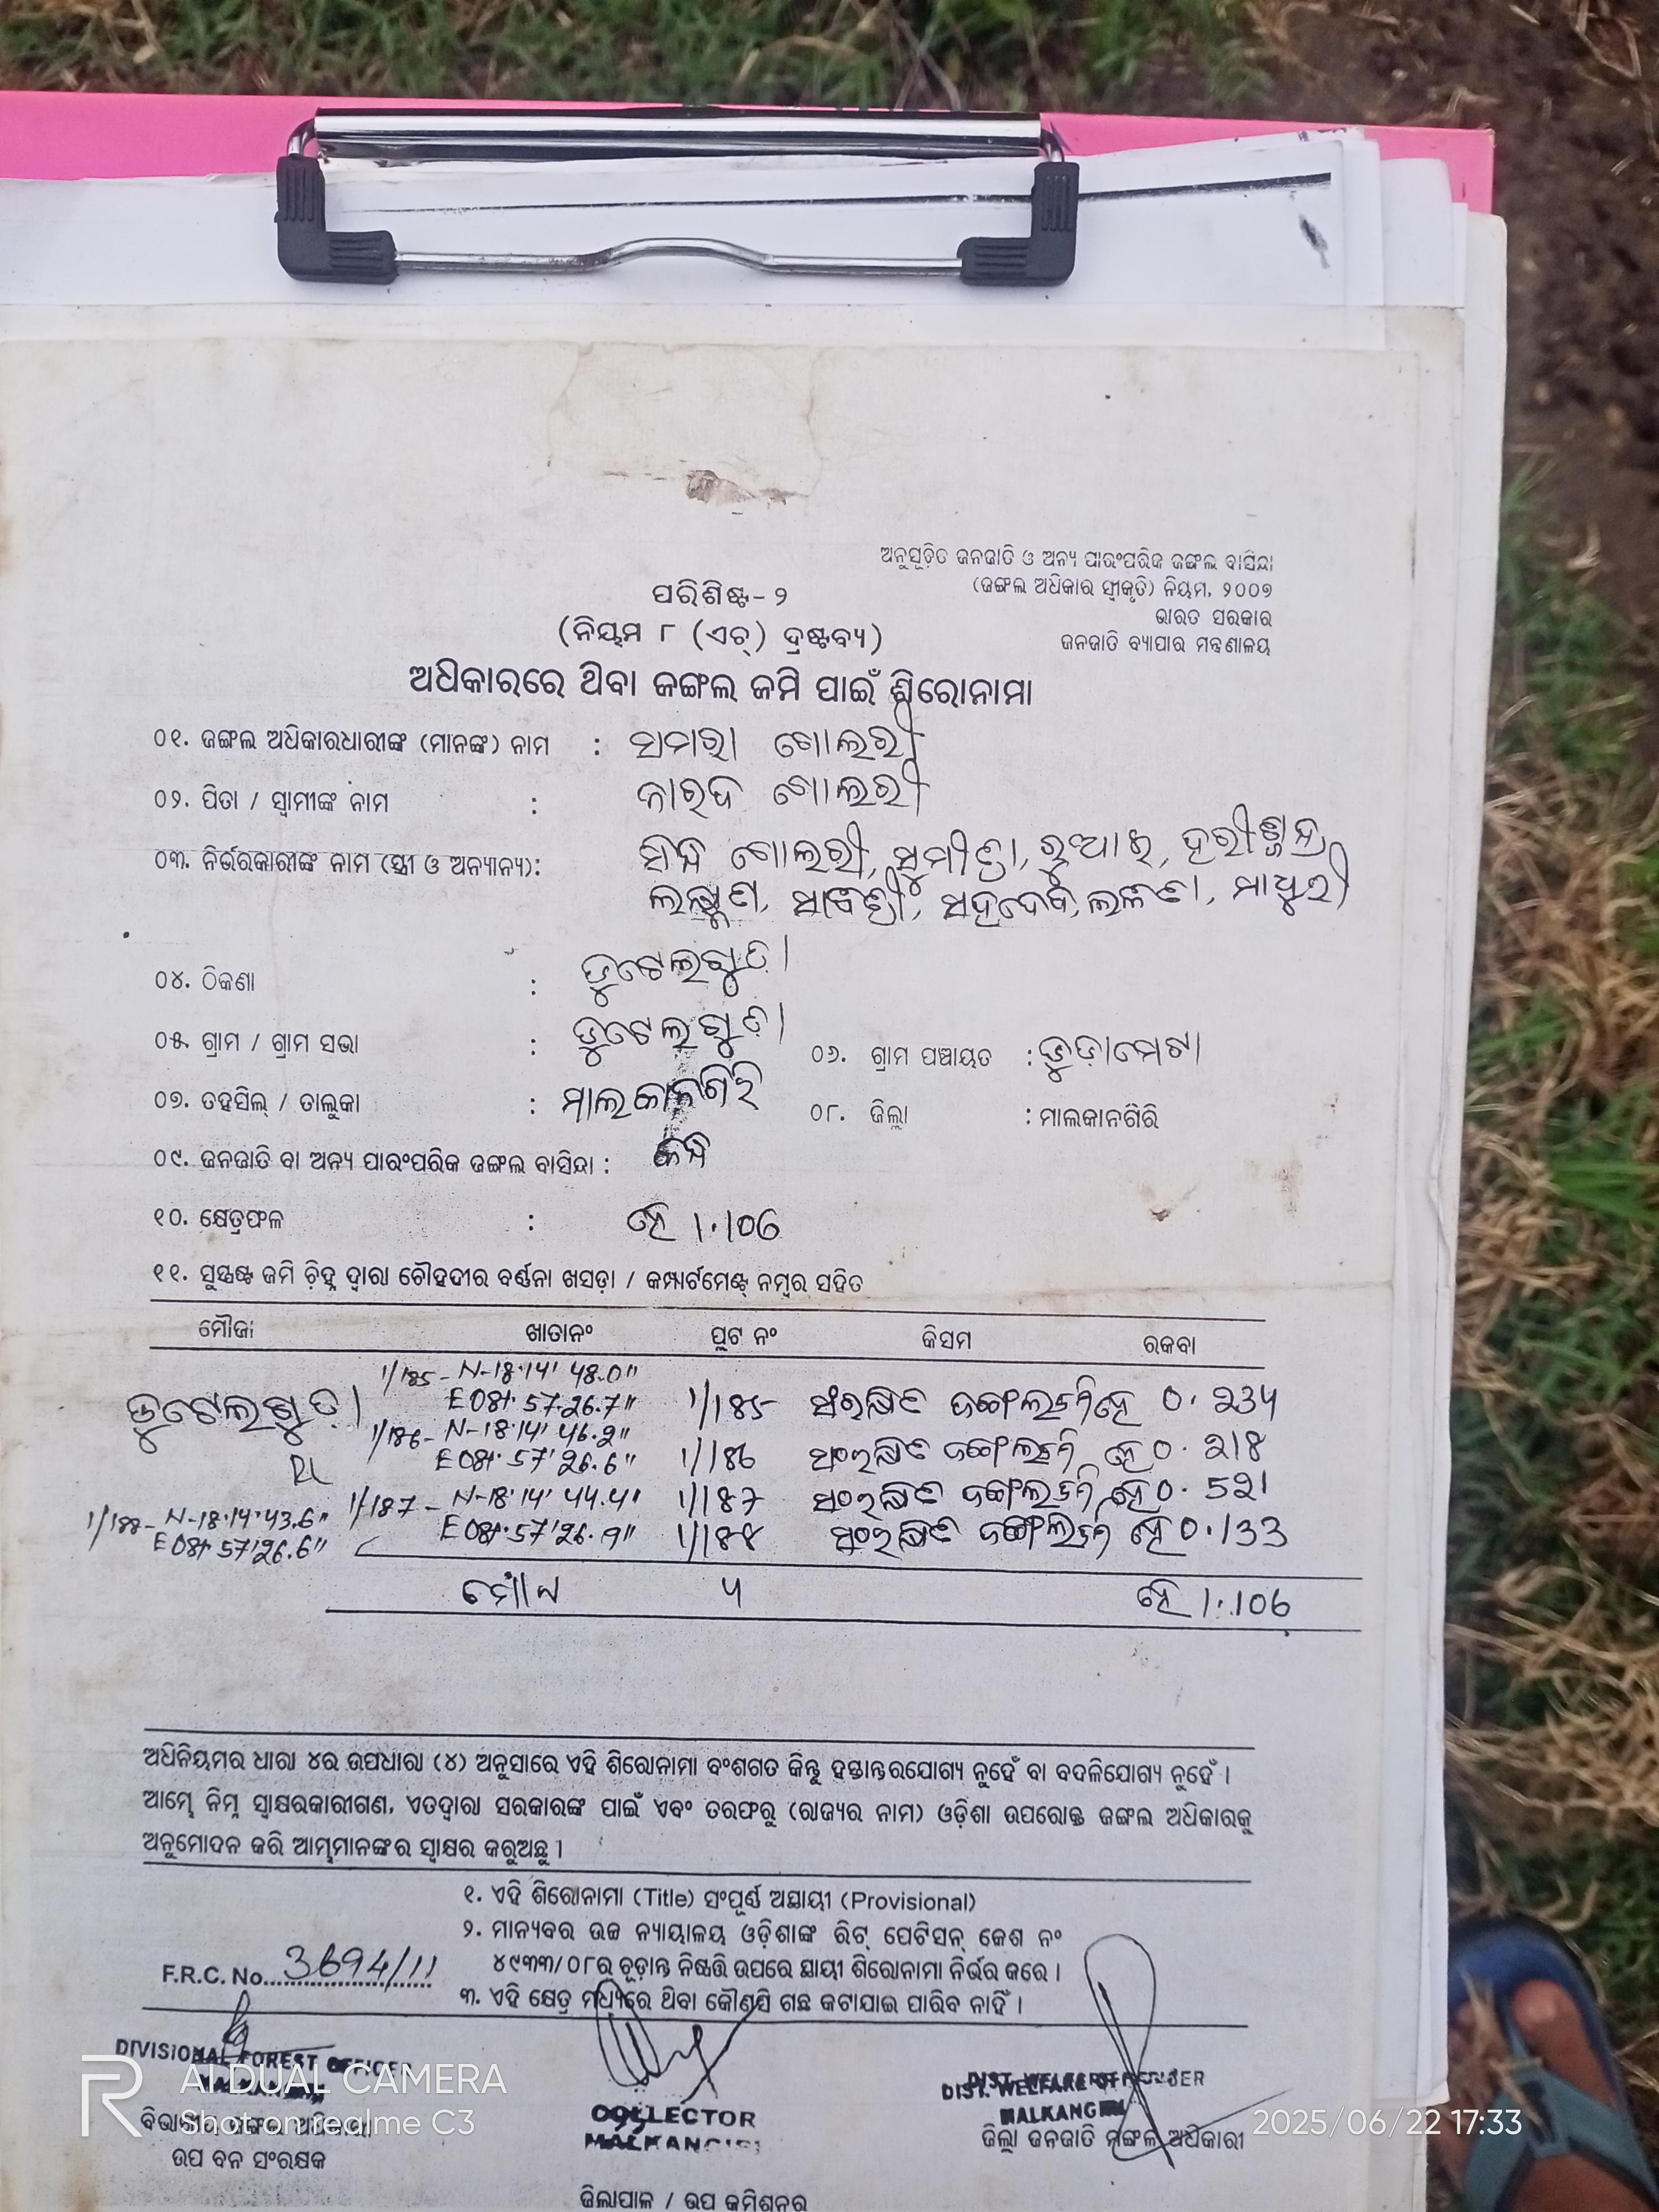 ଅନୁସୂଚିତ ଜନଜାତି ଓ ଅନ୍ୟ ପାରଂପରିକ ଜଙ୍ଗଲ ବାସିନ୍ଦା
(ଜଙ୍ଗଲ ଅଧିକାର ସ୍ୱୀକୃତି) ନିୟମ, ୨୦୦୭
ଭାରତ ସରକାର
ଜନଜାତି ବ୍ୟାପାର ମନ୍ତ୍ରଣାଳୟ
ପରିଶିଷ୍ଟ- ୨
(ନିୟମ ୮ (ଏଚ୍) ଦ୍ରଷ୍ଟବ୍ୟ)
ଅଧିକାରରେ ଥିବା ଜଙ୍ଗଲ ଜମି ପାଇଁ ଶିରୋନାମା
୦୧. ଜଙ୍ଗଲ ଅଧିକାରଧାରୀଙ୍କ (ମାନଙ୍କ) ନାମ : ଗୋଲରୀ
୦୨. ପିତା / ସ୍ୱାମୀଙ୍କ ନାମ : ଗୋଲରୀ
୦୩. ନିର୍ଭରକାରୀଙ୍କ ନାମ (ସ୍ତ୍ରୀ ଓ ଅନ୍ୟାନ୍ୟ): ଗୋଲରୀ,
ଲକ୍ଷ୍ମଣ, ସହଦେବ, ମାଧୁରୀ
୦୪. ଠିକଣା : ଡୁଟେଲଗୁଡ଼ା
୦୫. ଗ୍ରାମ / ଗ୍ରାମ ସଭା : ଡୁଟେଲଗୁଡ଼ା
୦୬. ଗ୍ରାମ ପଞ୍ଚାୟତ :
୦୭. ତହସିଲ୍ / ତାଲୁକା : ମାଲକାନଗିରି
୦୮. ଜିଲ୍ଲା : ମାଲକାନଗିରି
୦୯. ଜନଜାତି ବା ଅନ୍ୟ ପାରଂପରିକ ଜଙ୍ଗଲ ବାସିନ୍ଦା : କନ୍ଧ
୧୦. କ୍ଷେତ୍ରଫଳ : ହେ 1.106
୧୧. ସୁସ୍ପଷ୍ଟ ଜମି ଚିହ୍ନ ଦ୍ୱାରା ଚୌହଦୀର ବର୍ଣ୍ଣନା ଖସଡ଼ା / କମ୍ପାର୍ଟମେଣ୍ଟ୍ ନମ୍ବର ସହିତ
ମୌଜା ଖାତାନଂ ପ୍ଲଟ ନଂ କିସମ ରକବା
1/185- N-18°14' 48.0"
ଡୁଟେଲଗୁଡ଼ା 57'26.7" 1/185 ସଂରକ୍ଷିତ ଜଙ୍ଗଲଜମି ହେ 0.234
1/186- N-18°14' 46.2"
57'26.6" 1/186 ସଂରକ୍ଷିତ ଜଙ୍ଗଲଜମି ହେ 0.218
1/187- N-18°14' 44.4" 1/187 ସଂରକ୍ଷିତ ଜଙ୍ଗଲଜମି ହେ 0.521
1/188- N-18°14'43.6" 57'26.9" 1/188 ସଂରକ୍ଷିତ ଜଙ୍ଗଲଜମି ହେ 0.133
57'26.6"
ମୋଟ ୪ ହେ 1.106
ଅଧିନିୟମର ଧାରା ୪ର ଉପଧାରା (୪) ଅନୁସାରେ ଏହି ଶିରୋନାମା ବଂଶଗତ କିନ୍ତୁ ହସ୍ତାନ୍ତରଯୋଗ୍ୟ ନୁହେଁ ବା ବଦଳିଯୋଗ୍ୟ ନୁହେଁ ।
ଆମ୍ଭେ ନିମ୍ନ ସ୍ୱାକ୍ଷରକାରୀଗଣ, ଏତଦ୍ୱାରା ସରକାରଙ୍କ ପାଇଁ ଏବଂ ତରଫରୁ (ରାଜ୍ୟର ନାମ) ଓଡ଼ିଶା ଉପରୋକ୍ତ ଜଙ୍ଗଲ ଅଧିକାରକୁ
ଅନୁମୋଦନ କରି ଆମ୍ଭମାନଙ୍କର ସ୍ୱାକ୍ଷର କରୁଅଛୁ ।
୧. ଏହି ଶିରୋନାମା (Title) ସଂପୂର୍ଣ୍ଣ ଅସ୍ଥାୟୀ (Provisional)
୨. ମାନ୍ୟବର ଉଚ୍ଚ ନ୍ୟାୟାଳୟ ଓଡ଼ିଶାଙ୍କ ରିଟ୍ ପେଟିସନ୍ କେଶ ନଂ
୪୯୩୩/୦୮ର ଚୂଡ଼ାନ୍ତ ନିଷ୍ପତ୍ତି ଉପରେ ସ୍ଥାୟୀ ଶିରୋନାମା ନିର୍ଭର କରେ ।
F.R.C. No. 3694/11
୩. ଏହି କ୍ଷେତ୍ର ମଧ୍ୟରେ ଥିବା କୌଣସି ଗଛ କଟାଯାଇ ପାରିବ ନାହିଁ ।
DIVISIONAL FOREST OFFICER
ବିଭାଗୀୟ ଜଙ୍ଗଲ ଅଧିକାରୀ
ଉପ ବନ ସଂରକ୍ଷକ
COLLECTOR
MALKANGIRI
ଜିଲାପାଳ / ଉପ କମିଶନର
DIST. WELFARE OFFICER
MALKANGIRI
ଜିଲ୍ଲା ଜନଜାତି ମଙ୍ଗଳ ଅଧିକାରୀ
AI DUAL CAMERA
Shot on realme C3
2025/06/22 17:33